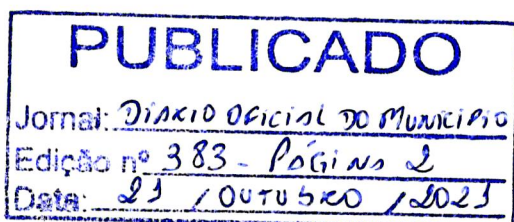 PUBLICADO
Jornal: DIÁRIO OFICIAL DO MUNICÍPIO
Edição nº 383 - PÁGINA 2
Data: 21 / OUTUBRO / 2021